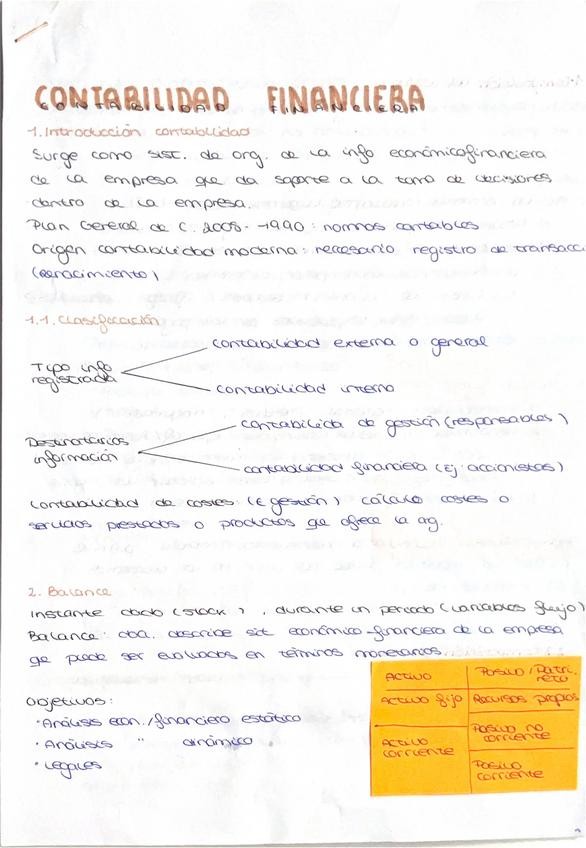 CONTABILIDAD FINANCIERA
1. Introducción contabilidad
Surge como sist. de org. de la info económicofinanciera
de la empresa que da soporte a la toma de decisiones
dentro de la empresa.
Plan General de C. 2008 - 1990: normas contables
Origen contabilidad moderna: necesario registro de transacci
(Renacimiento)
1.1. Clasificación
Contabilidad externa o general
Tipo info
registrada
contabilidad interna
contabilida de gestión (responsables)
Destinatarios
información
contabilidad financiera (Ej: accionistas)
Contabilidad de costes: (E gestión) cálculo costes o
servicios prestados o productos que ofrece la ag.
2. Balance
Instante dado (stock), durante un periodo (variables flujo)
Balance: doc. describe sit. económico-financiera de la empresa
qe puede ser evaluados en términos monetarios
Objetivos:
· Análisis econ./financiero estático
· Análisis " dinámico
· Legales
Activo
Pasivo/Patri. neto
Activo fijo
Recursos propios
Activo corriente
Pasivo no corriente
Pasivo corriente